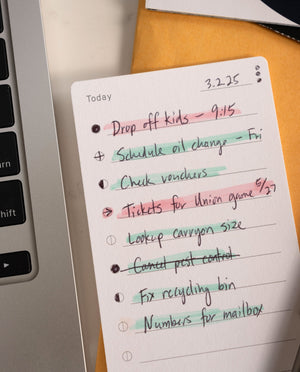 3.2.25
Today
Drop off kids - 9:15
Schedule oil change - Fri
Check vouchers
Tickets for Union game 5/27
Lookup carryon size
Cancel pest control
Fix recycling bin
Numbers for mailbox
shift